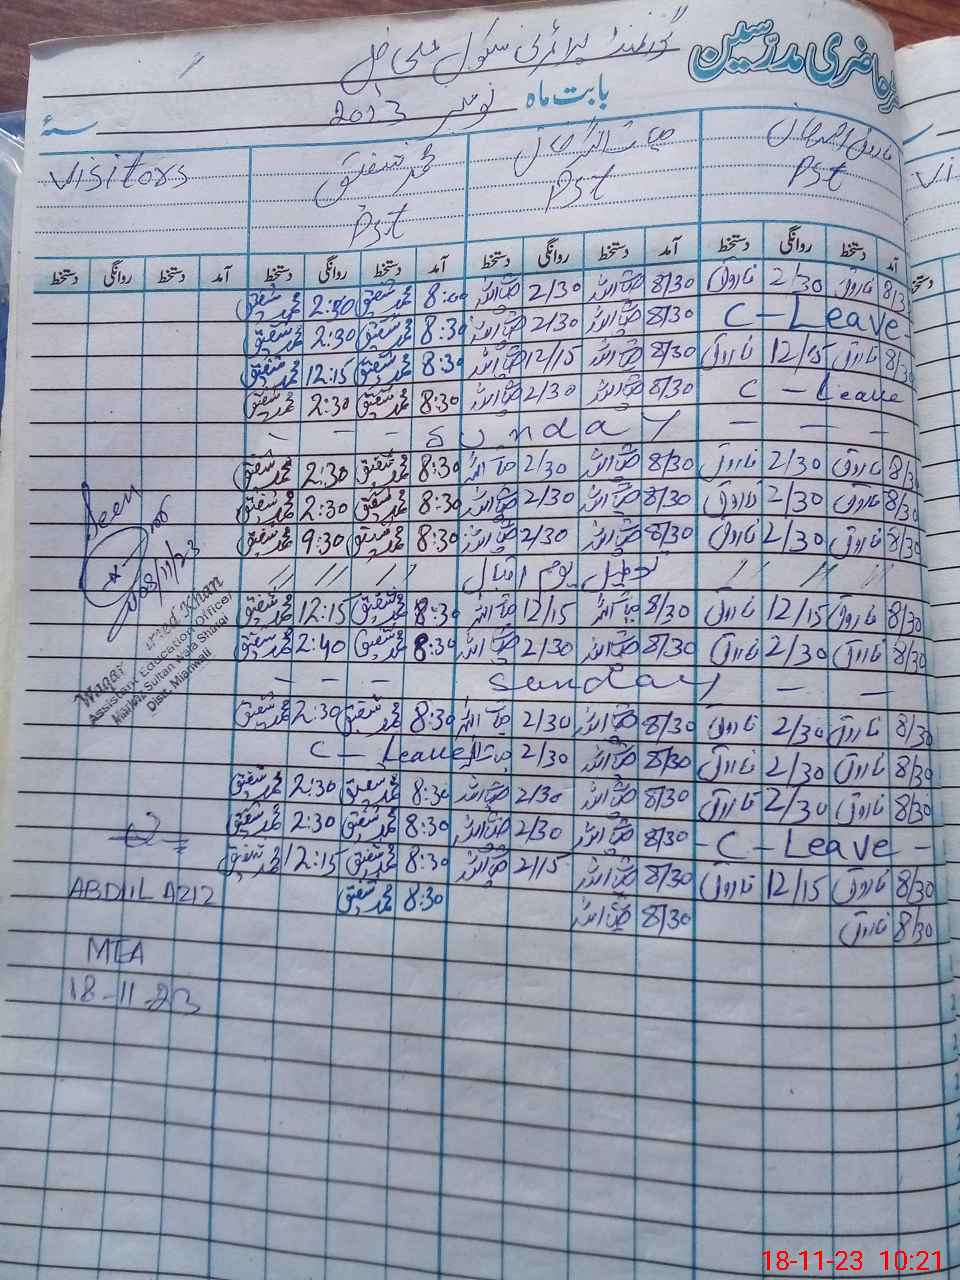 حاضری مدرسین
گورنمنٹ پرائمری سکول علی خیل
بابت ماہ نومبر 2023 سنہ
فاروق Pst
حیات اللہ خان Pst
محمد شفیق Pst
Visitors
آمد دستخط روانگی دستخط آمد دستخط روانگی دستخط آمد دستخط روانگی دستخط آمد دستخط روانگی دستخط
8/30 فاروق 2/30 فاروق 8/30 حیات اللہ 2/30 حیات اللہ 8:00 محمد شفیق محمد شفیق
C - Leave - 8/30 حیات اللہ 2/30 حیات اللہ 8:30 محمد شفیق 2:30 محمد شفیق
8/30 فاروق 12/15 فاروق 8/30 حیات اللہ 12/15 حیات اللہ 8:30 محمد شفیق 12:15 محمد شفیق
C - Leave 8/30 حیات اللہ 2/30 حیات اللہ 8:30 محمد شفیق 2:30 محمد شفیق
- - - Sunday - - -
8/30 فاروق 2/30 فاروق 8/30 حیات اللہ 2/30 حیات اللہ 8:30 محمد شفیق 2:30 محمد شفیق
8/30 فاروق 2/30 فاروق 8/30 حیات اللہ 2/30 حیات اللہ 8:30 محمد شفیق 2:30 محمد شفیق
8/30 فاروق 2/30 فاروق 8/30 حیات اللہ 2/30 حیات اللہ 8:30 محمد شفیق 9:30 محمد شفیق
// // // تعطیل یوم اقبال // // //
8/30 فاروق 12/15 فاروق 8/30 حیات اللہ 12/15 حیات اللہ 8:30 محمد شفیق 12:15 محمد شفیق
8/30 فاروق 2/30 فاروق 8/30 حیات اللہ 2/30 حیات اللہ 8:30 محمد شفیق 2:40 محمد شفیق
- - - Sunday - -
8/30 فاروق 2/30 فاروق 8/30 حیات اللہ 2/30 حیات اللہ 8:30 محمد شفیق 2:30 محمد شفیق
8/30 فاروق 2/30 فاروق 8/30 حیات اللہ 2/30 حیات اللہ C - Leave
8/30 فاروق 2/30 فاروق 8/30 حیات اللہ 2/30 حیات اللہ 8:30 محمد شفیق 2:30 محمد شفیق
- C - Leave - 8/30 حیات اللہ 2/30 حیات اللہ 8:30 محمد شفیق 2:30 محمد شفیق
8/30 فاروق 12/15 فاروق 8/30 حیات اللہ 2/15 حیات اللہ 8:30 محمد شفیق 12:15 محمد شفیق
8/30 فاروق 8/30 حیات اللہ 8:30 محمد شفیق
Seen
08/11/23
Khan
Assistant Education Officer
Sultan Wala Sharqi
Distt. Mianwali
ABDUL AZIZ
MEA
18-11-23
18-11-23 10:21